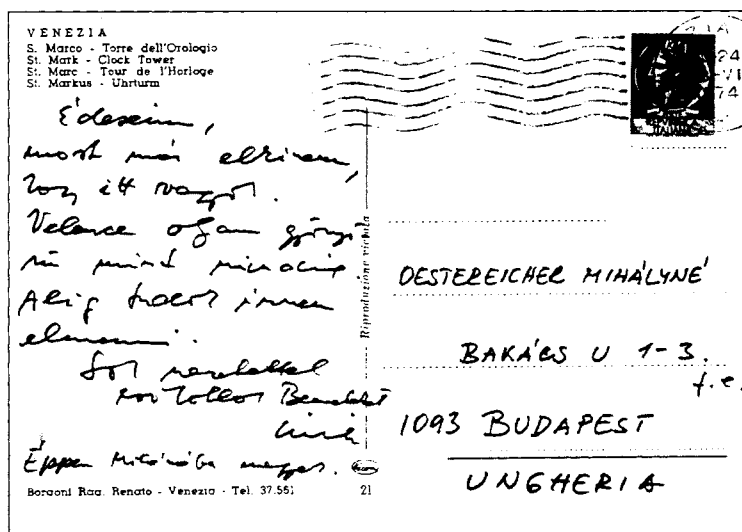 VENEZIA
S. Marco - Torre dell'Orologio
St. Mark - Clock Tower
St. Marc - Tour de l'Horloge
St. Markus - Uhrturm
Édeseim,
most már elhiszem,
hogy itt vagyok.
Velence olyan gyönyö-
rű mint
Alig tudok innen
elmenni.
Sok szeretettel
Benedek
Éppen megyek.
Borgoni Rag. Renato - Venezia - Tel. 37.561
21
Riproduzione vietata
24
VI
74
REPUBBLICA
ITALIANA
OESTEREICHER MIHÁLYNÉ
BAKÁCS U 1-3.
f.e.
1093 BUDAPEST
UNGHERIA